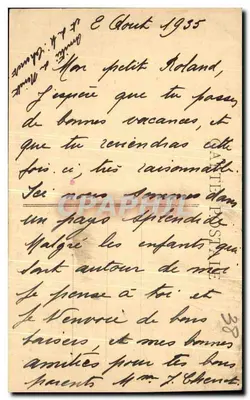 2 Aout 1935
Mon petit Roland,
J'espère que tu passes
de bonnes vacances, et
que tu reviendras cette
fois ci, très raisonnable.
Ici nous sommes dans
un pays splendide
Malgré les enfants qui
sont autour de moi
je pense à toi et
je t'envoie de bons
baisers, et mes bonnes
amitiés pour tes bons
parents Mme J. Chenot
CARTE POSTALE
CPAPHIL
38